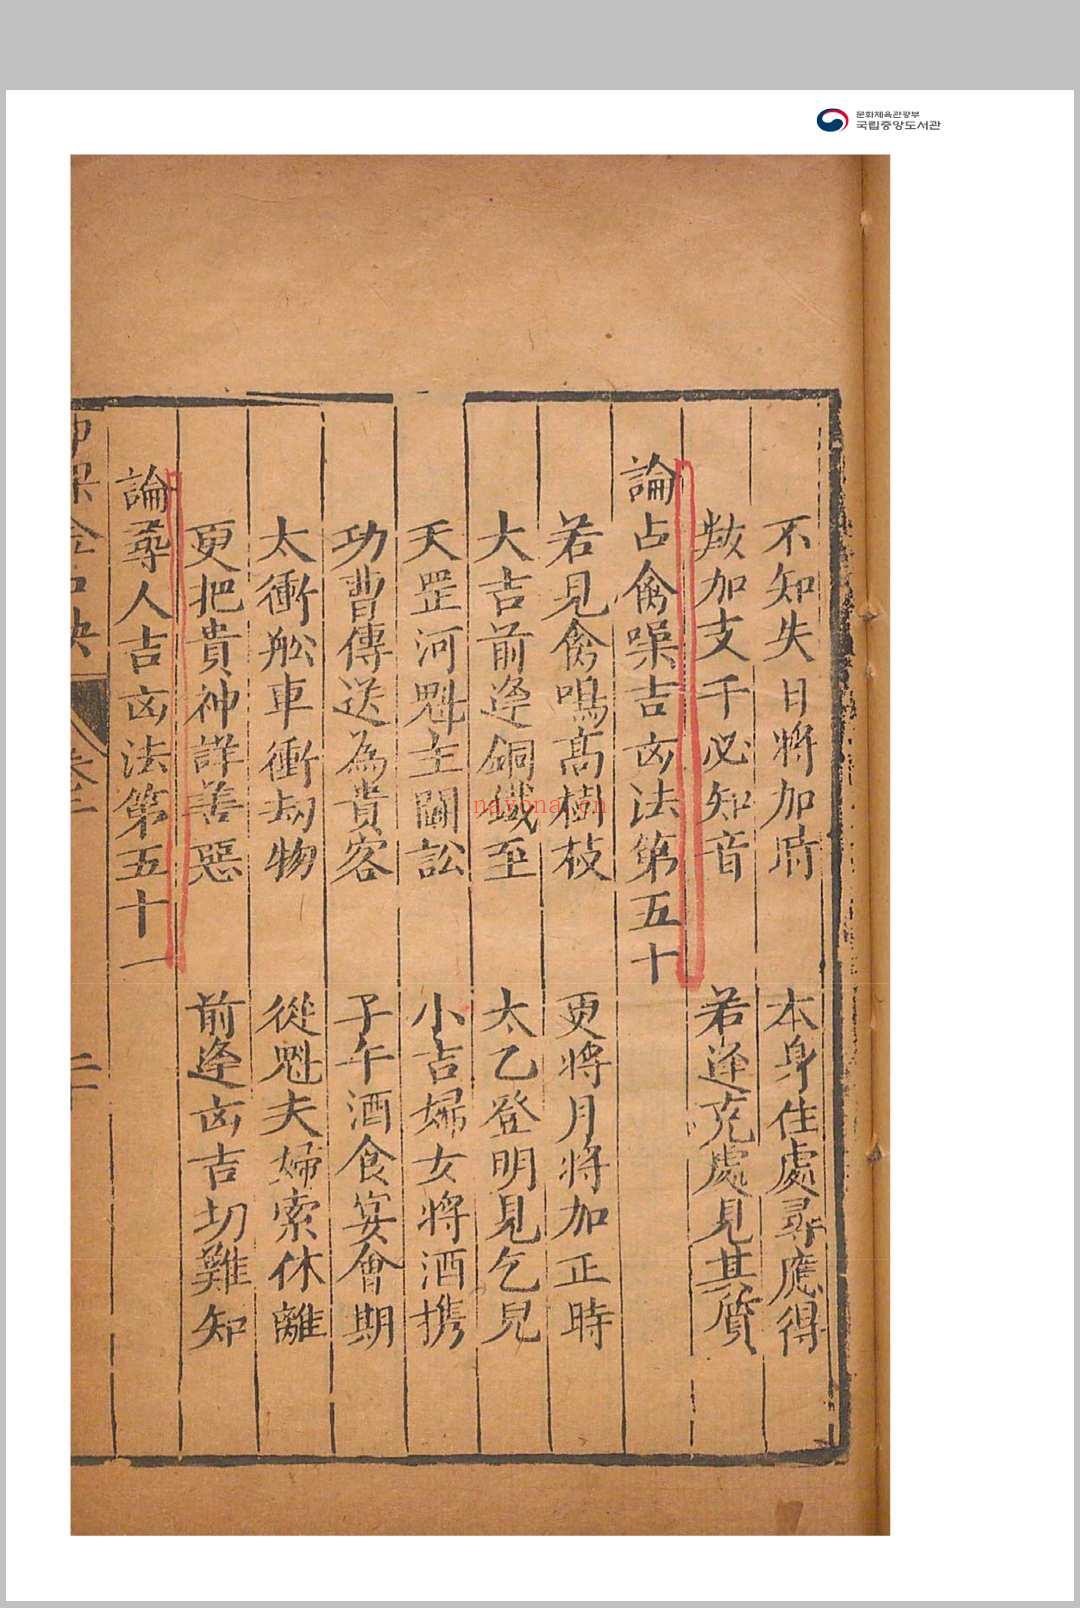 문화체육관광부
국립중앙도서관
不知失日將加時 本身住處尋應得
加支干必知音 若逢克處見其質
論占禽噪吉凶法第五十
若見禽鳴高樹枝 更將月將加正時
大吉前逢銅鐵至 太乙登明見乞兒
天罡河魁主鬪訟 小吉婦女將酒携
功曹傳送為貴客 子午酒食宴會期
太衝舩車衝劫物 從魁夫婦索休離
更把貴神詳善惡 前逢凶吉切難知
論尋人吉凶法第五十一
金口訣
卷二
二
nayona.cn